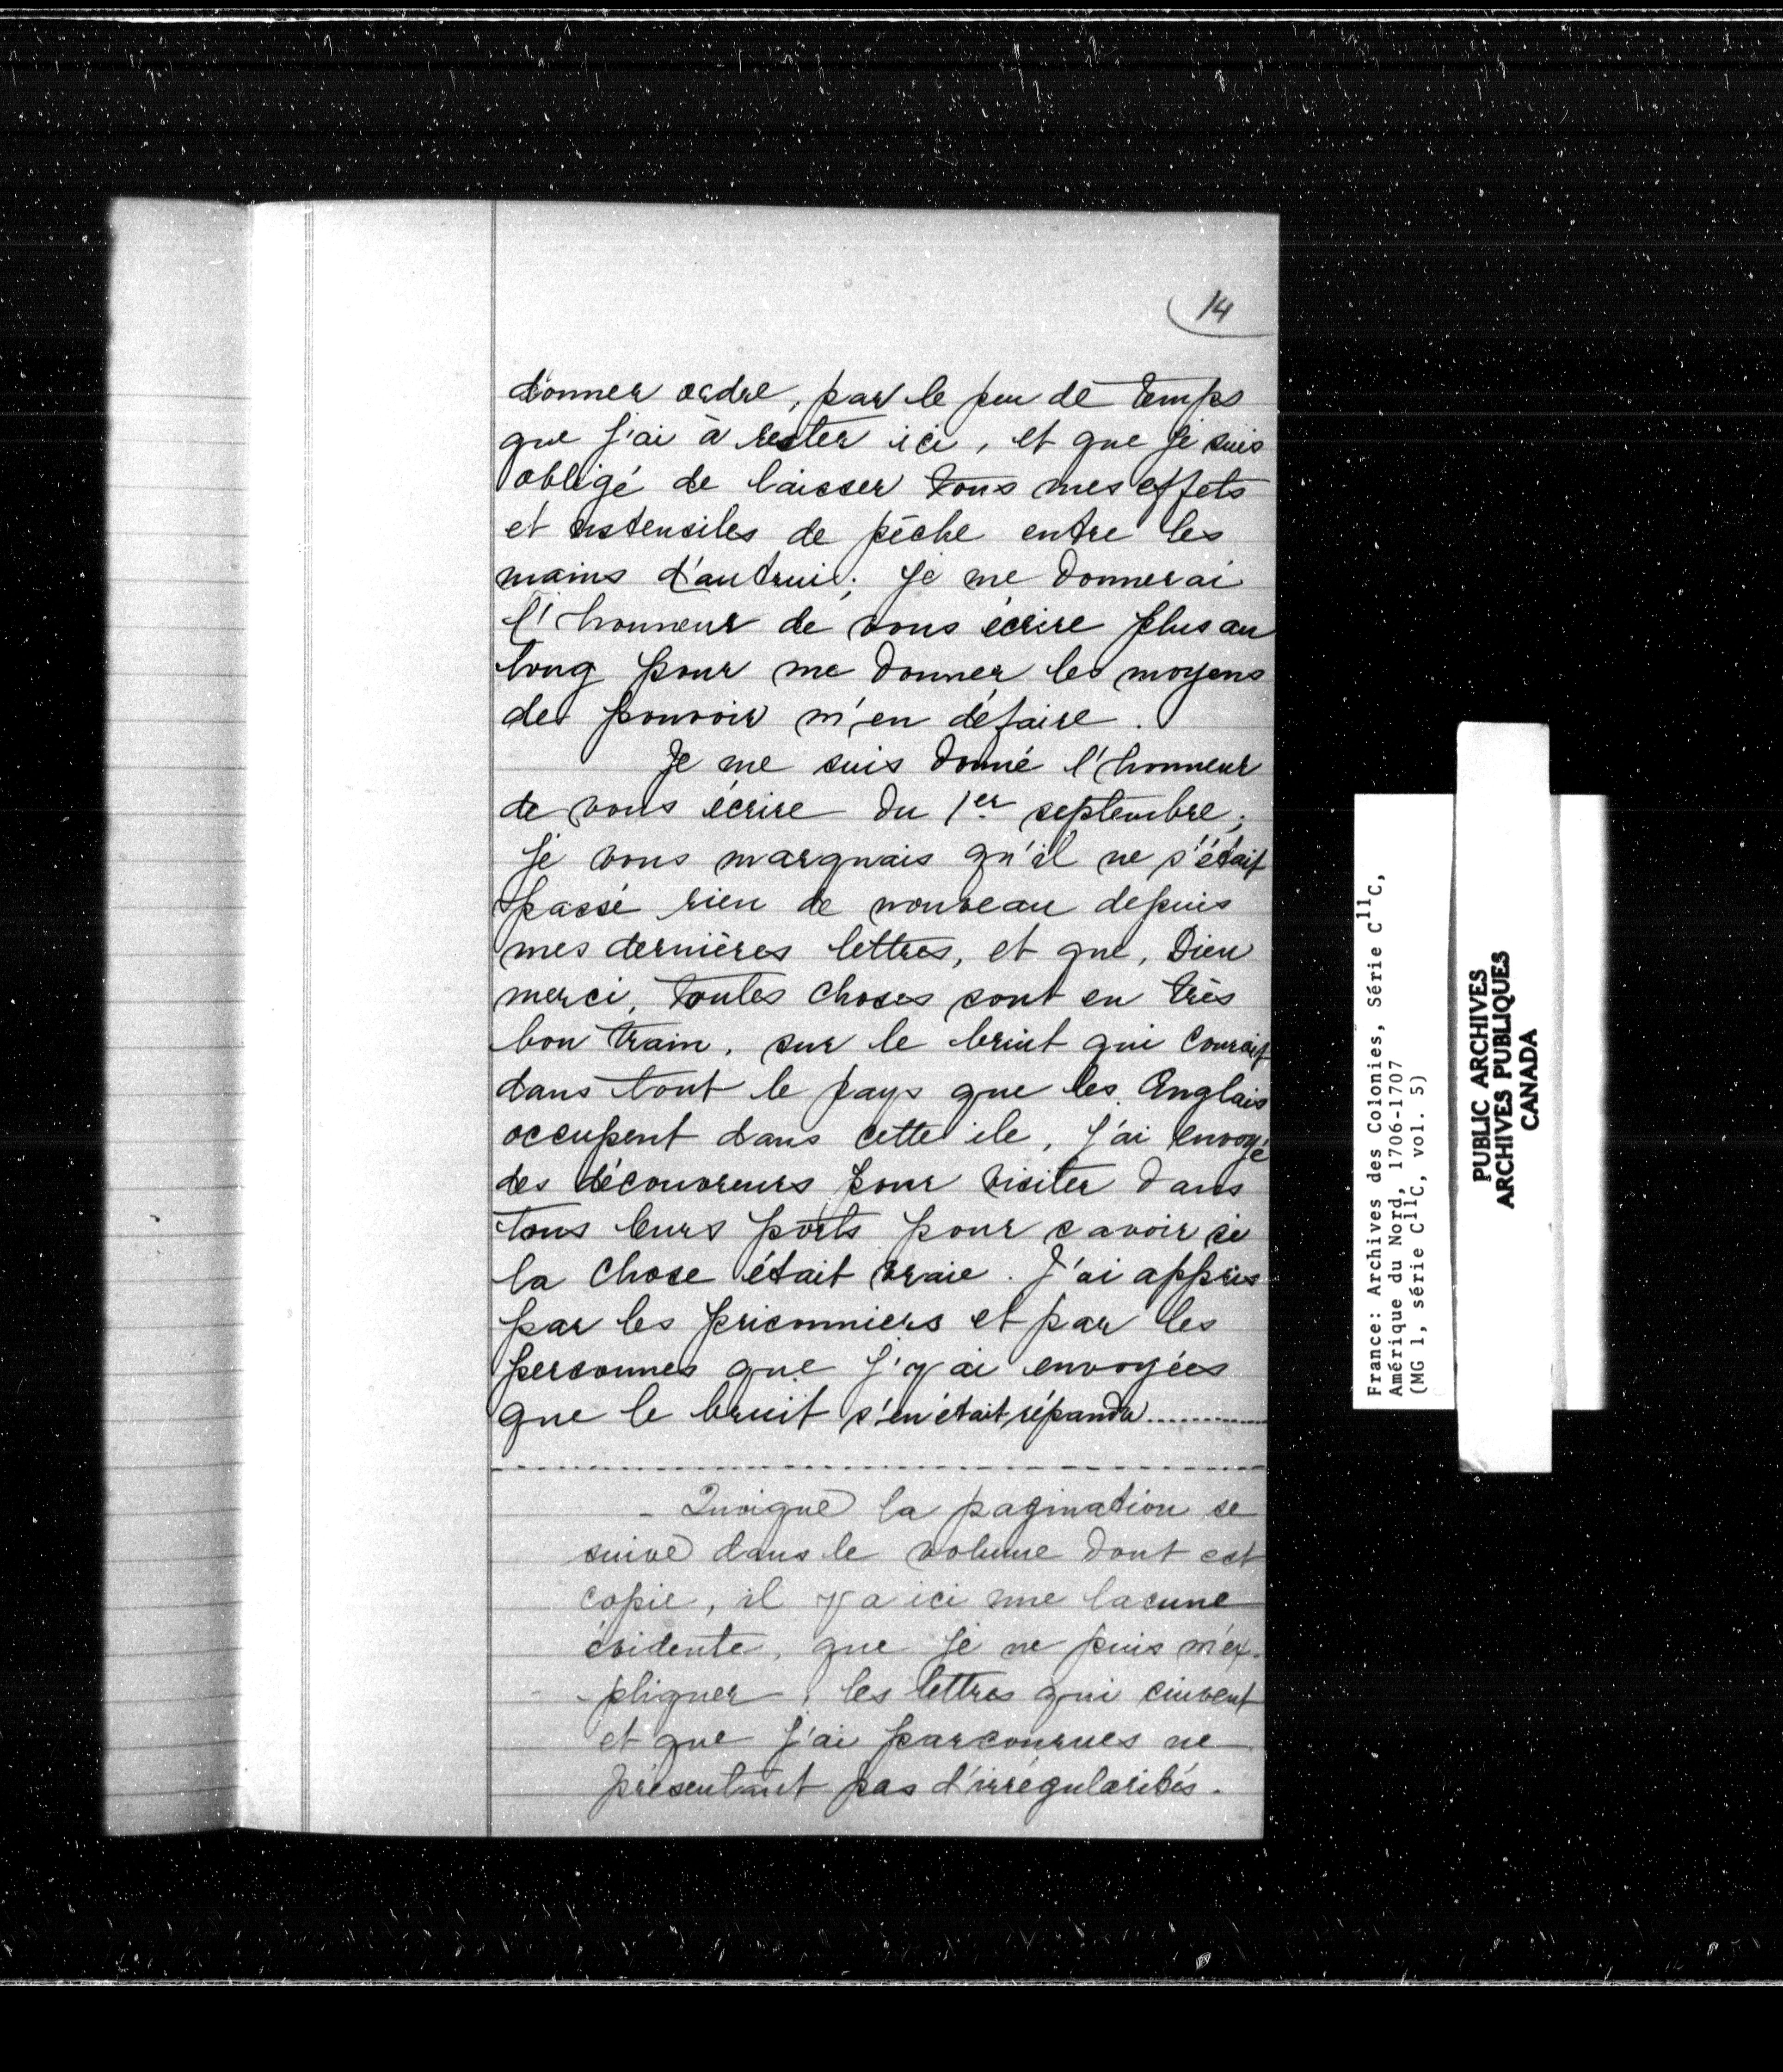 14
donner ordre, par le peu de temps
que j'ai à rester ici, et que je suis
obligé de laisser tous mes effets
et ustensiles de pêche entre les
mains d'autrui; je me donnerai
l'honneur de vous écrire plus au
long pour me donner les moyens
de pouvoir m'en défaire.
Je me suis donné l'honneur
de vous écrire du 1er septembre;
je vous marquais qu'il ne s'était
passé rien de nouveau depuis
mes dernières lettres, et que, Dieu
merci, toutes choses sont en très
bon train, sur le bruit qui courait
dans tout le pays que les Anglais
occupent dans cette ile, j'ai envoyé
des découvreurs pour visiter dans
tous leurs ports pour savoir si
la chose était vraie. J'ai appris
par les prisonniers et par les
personnes que j'y ai envoyées
que le bruit s'en était répandu............
- Quoique la pagination se
suive dans le volume dont est
copie, il y a ici une lacune
évidente, que je ne puis m'ex-
pliquer, les lettres qui suivent
et que j'ai parcourues ne
présentant pas d'irrégularités.
France: Archives des Colonies, Série C11C,
Amérique du Nord, 1706-1707
(MG 1, série C11C, vol. 5)
PUBLIC ARCHIVES
ARCHIVES PUBLIQUES
CANADA